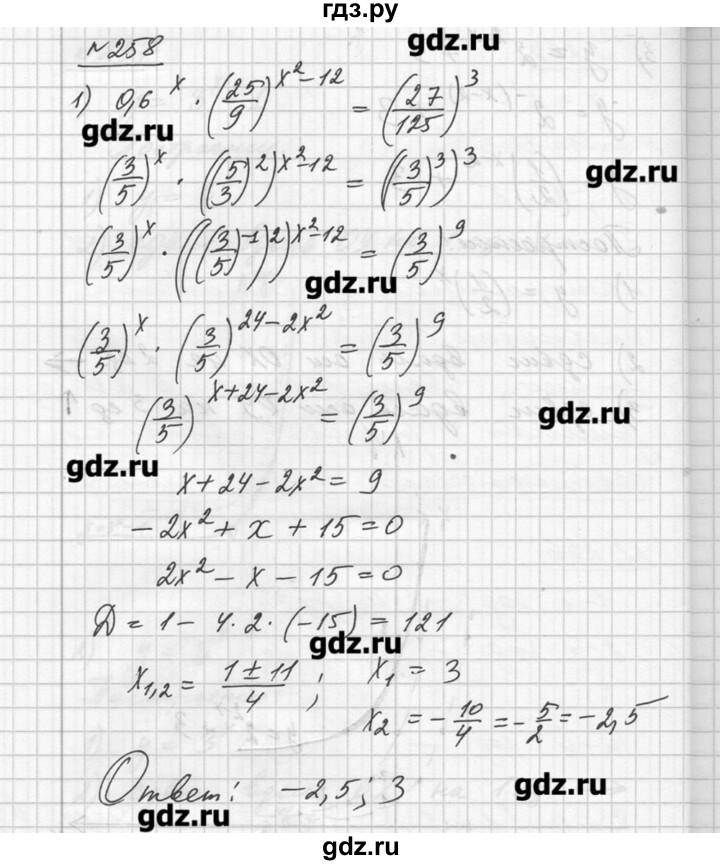 гдз.ру
№258
gdz.ru
1) 0,6^x · (25/9)^(x²-12) = (27/125)^3
gdz.ru
(3/5)^x · ((5/3)^2)^(x²-12) = ((3/5)^3)^3
gdz.ru
(3/5)^x · (((3/5)^-1)^2)^(x²-12) = (3/5)^9
gdz.ru
(3/5)^x · (3/5)^(24-2x²) = (3/5)^9
(3/5)^(x+24-2x²) = (3/5)^9
gdz.ru
gdz.ru
x+24-2x² = 9
-2x² + x + 15 = 0
2x² - x - 15 = 0
Д = 1 - 4·2·(-15) = 121
gdz.ru
x1,2 = (1±11)/4 ; x1 = 3
x2 = -10/4 = -5/2 = -2,5
Ответ: -2,5; 3
gdz.ru
gdz.ru
gdz.ru